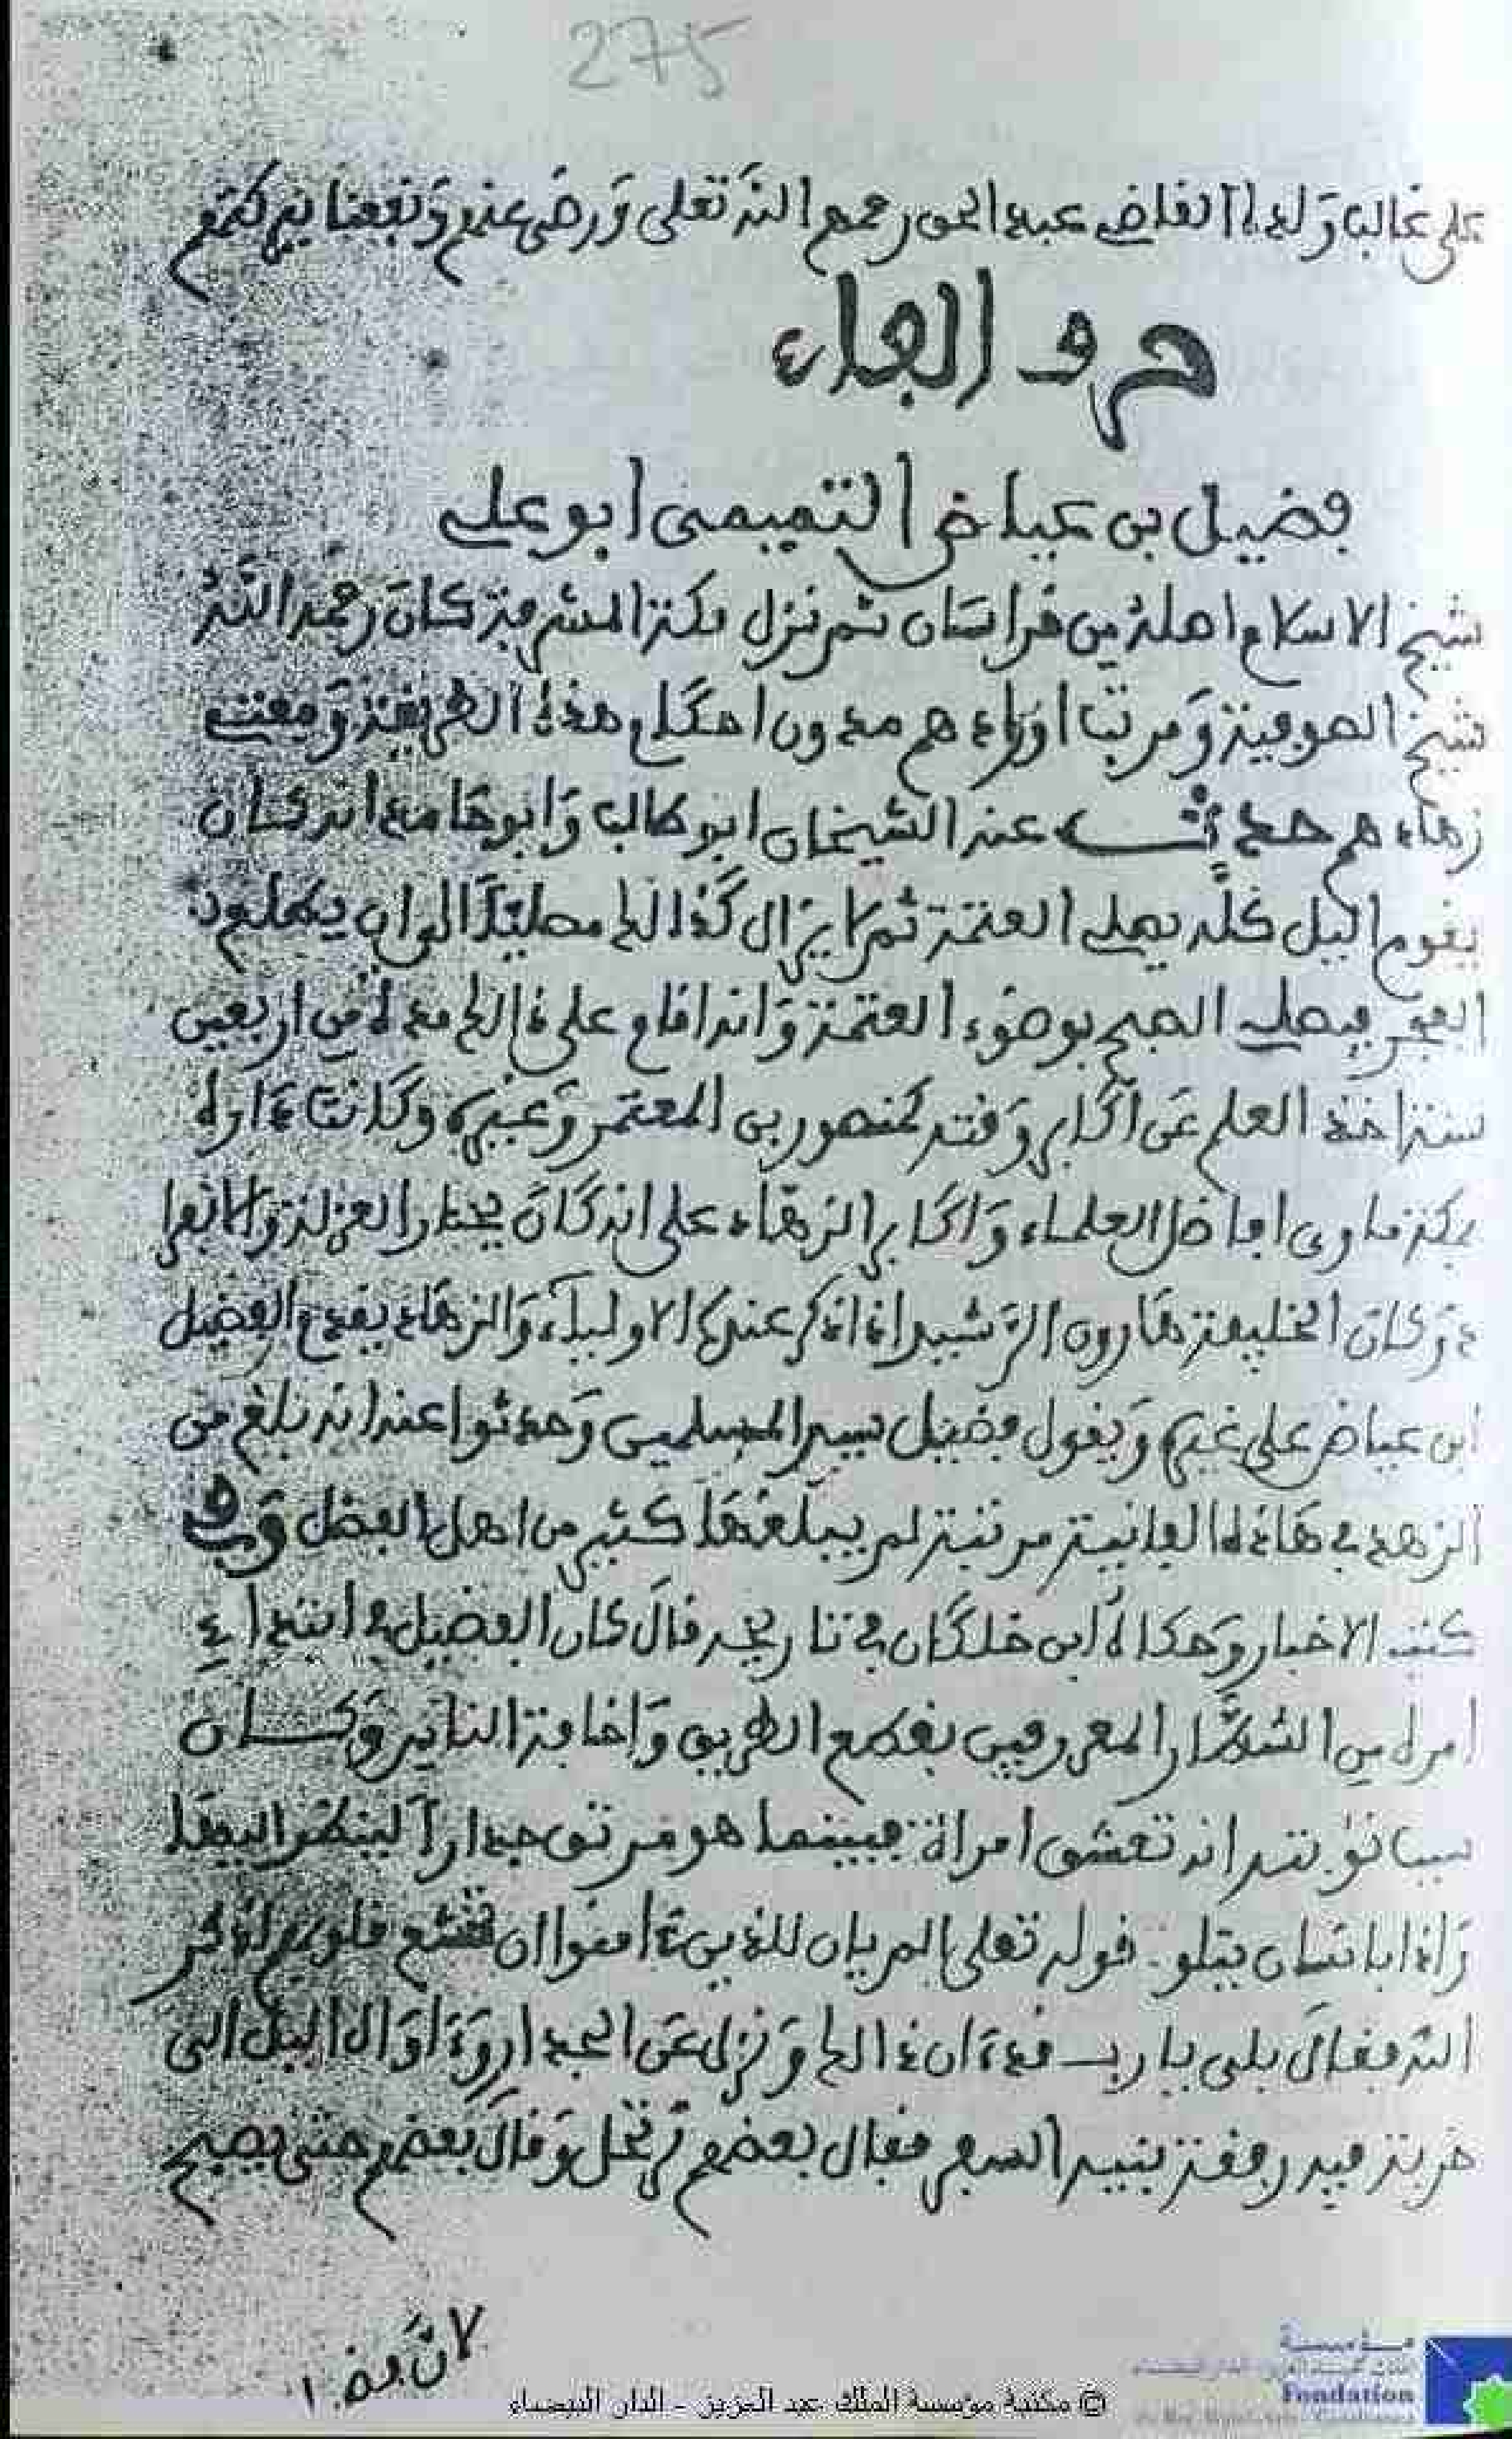 275
على غالب ولده القاضي عبد الحق رحمهم الله تعلى ورضي عنهم ونفعنا ببركتهم
حرف الفاء
فضيل بن عياض التميمى ابو علي
شيخ الاسلام اصله من خراسان ثم نزل مكة المشرفة كان رحمه الله
شيخ الصوفية ومرتب اورادهم مدون احكام هذه الطريقة
زهادهم حدث عنه الشيخان ابو طالب وابو حامد انه كان
يقوم اليل كله يصلي العتمة ثم لا يزال كذالك مصليا الى ان يطلع
الفجر فيصلي الصبح بوضوء العتمة وانه اقام على ذالك مدة من اربعين
سنة اخذ العلم عن اكابر وقته كمنصور بن المعتمر وغيره وكانت داره
بمكة ماوى افاضل العلماء واكابر الزهاد على انه كان يختار العزلة والانفرا
د وكان الخليفة هارون الرشيد اذا ذكر عنده الاولياء والزهاد يقدم الفضيل
ابن عياض على غيره ويقول فضيل سيد المسلمين وحدثوا عنه انه بلغ من
الزهد في هاذه الفانية مرتبة لم يبلغها كثير من اهل الفضل وفى
كتب الاخبار وحكاه ابن خلكان في تاريخه قال كان الفضيل في ابتداء
امره من الشطار المعروفين بقطع الطريق واخافة الناس وكان
سبب توبته انه تعشق امراة فبينما هو مرتق جدارا لينظر اليها
واذا بانسان يتلو قوله تعلى الم يان للذين ءامنوا ان تخشع قلوبهم لذكر
الله فقال بلى يا رب قد ءان ذالك ونزل عن الجدار وءاواه اليل الى
خربة فيه رفقة بنية السفر فقال بعضهم نرتحل وقال بعضهم حتى يصبح
مؤسسة
Fondation
© مكتبة مؤسسة الملك عبد العزيز - الدار البيضاء